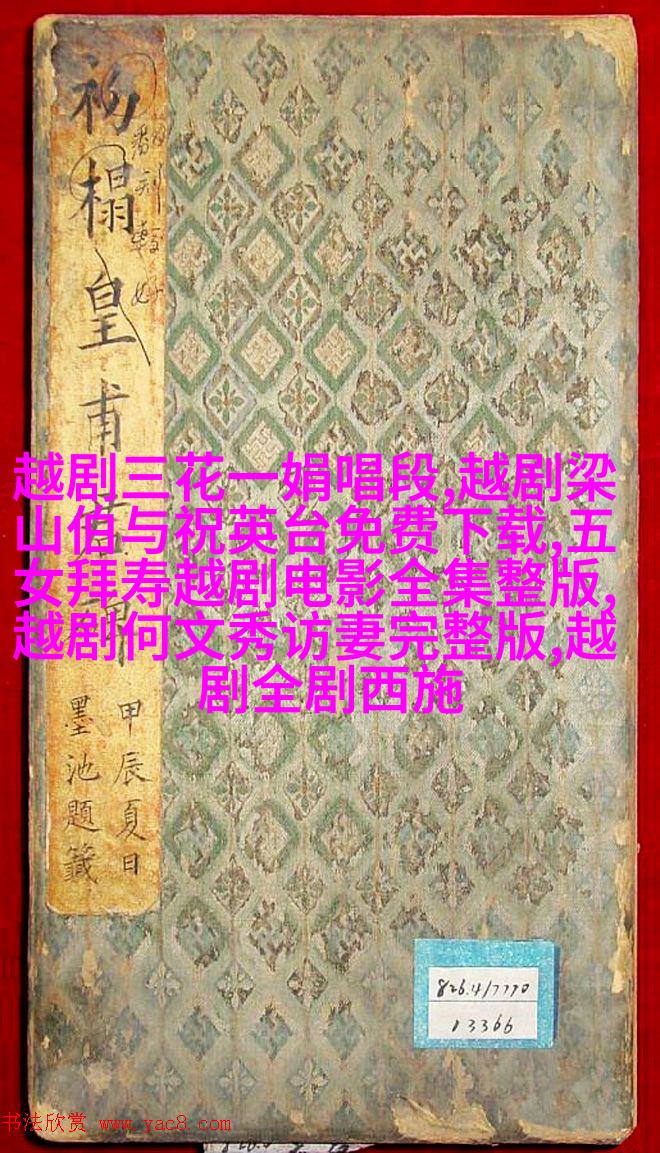 初榻皇甫君碑
翻刻較好
越剧三花一娟唱段,越剧梁
山伯与祝英台免费下载,五
女拜寿越剧电影全集整版,
越剧何文秀访妻完整版,越
剧全剧西施
甲辰夏日
墨池題籤
826.4/7770
13366
书法欣赏 www.yac8.com